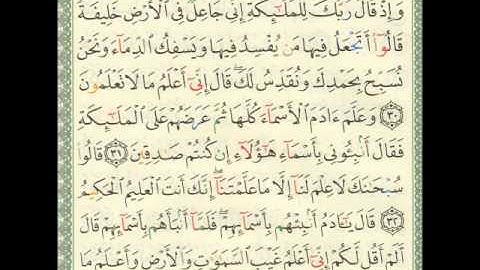 وَإِذْ قَالَ رَبُّكَ لِلْمَلَـٰٓئِكَةِ إِنِّى جَاعِلٌ فِى ٱلْأَرْضِ خَلِيفَةً
قَالُوٓا۟ أَتَجْعَلُ فِيهَا مَن يُفْسِدُ فِيهَا وَيَسْفِكُ ٱلدِّمَآءَ وَنَحْنُ
نُسَبِّحُ بِحَمْدِكَ وَنُقَدِّسُ لَكَ ۖ قَالَ إِنِّىٓ أَعْلَمُ مَا لَا تَعْلَمُونَ
٣٠ وَعَلَّمَ ءَادَمَ ٱلْأَسْمَآءَ كُلَّهَا ثُمَّ عَرَضَهُمْ عَلَى ٱلْمَلَـٰٓئِكَةِ
فَقَالَ أَنۢبِـُٔونِى بِأَسْمَآءِ هَـٰٓؤُلَآءِ إِن كُنتُمْ صَـٰدِقِينَ ٣١ قَالُوا۟
سُبْحَـٰنَكَ لَا عِلْمَ لَنَآ إِلَّا مَا عَلَّمْتَنَآ ۖ إِنَّكَ أَنتَ ٱلْعَلِيمُ ٱلْحَكِيمُ
٣٢ قَالَ يَـٰٓـَٔادَمُ أَنۢبِئْهُم بِأَسْمَآئِهِمْ ۖ فَلَمَّآ أَنۢبَأَهُم بِأَسْمَآئِهِمْ قَالَ
أَلَمْ أَقُل لَّكُمْ إِنِّىٓ أَعْلَمُ غَيْبَ ٱلسَّمَـٰوَٰتِ وَٱلْأَرْضِ وَأَعْلَمُ مَا